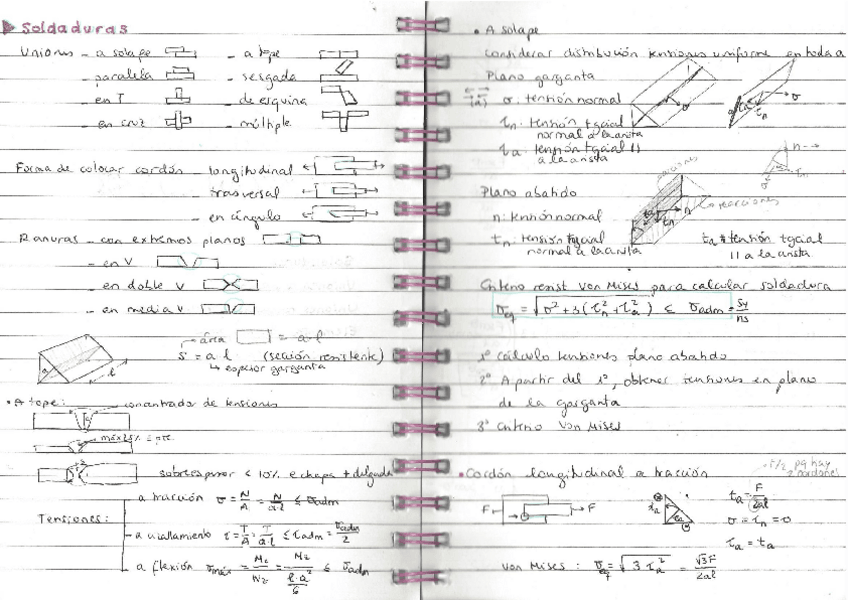 Soldaduras
Uniones - a solape - a tope
- paralela - sesgada
- en T - de esquina
- en cruz - múltiple
Forma de colocar cordón - longitudinal
- trasversal
- en ángulo
Ranuras - con extremos planos
- en V
- en doble V
- en media V
área = a·l
S = a l (sección resistente)
↳ espesor garganta
a l
• A tope: concentrado de tensiones
sobreespesor < 10% e chapa + delgada
Tensiones:
a tracción σ = N/A = N/a·l ≤ σadm
a cizallamiento τ = T/A = T/a·l ≤ τadm = σadm/2
a flexión σmáx = Mz/Wz = Mz/(l·a²/6) ≤ σadm
• A solape
Considerar distribución tensiones uniforme en toda a
Plano garganta
σ: tensión normal
τn: tensión tgcial
normal a la arista
τa: tensión tgcial ||
a la arista
Plano abatido
n: tensión normal
tn: tensión tgcial
normal a la arista
ta: tensión tgcial
|| a la arista
Criterio resist Von Mises para calcular soldadura
σeq = √σ² + 3(τn² + τa²) ≤ σadm = Sy/ns
1º Cálculo tensiones plano abatido
2º A partir del 1º, obtener tensiones en plano
de la garganta
3º Criterio Von Mises
• Cordón longitudinal a tracción
F/2 pq hay
2 cordones
F F
ta = F/2al
σ = τn = 0
τa = ta
Von Mises: σeq = √3 τa² = √3F/2al